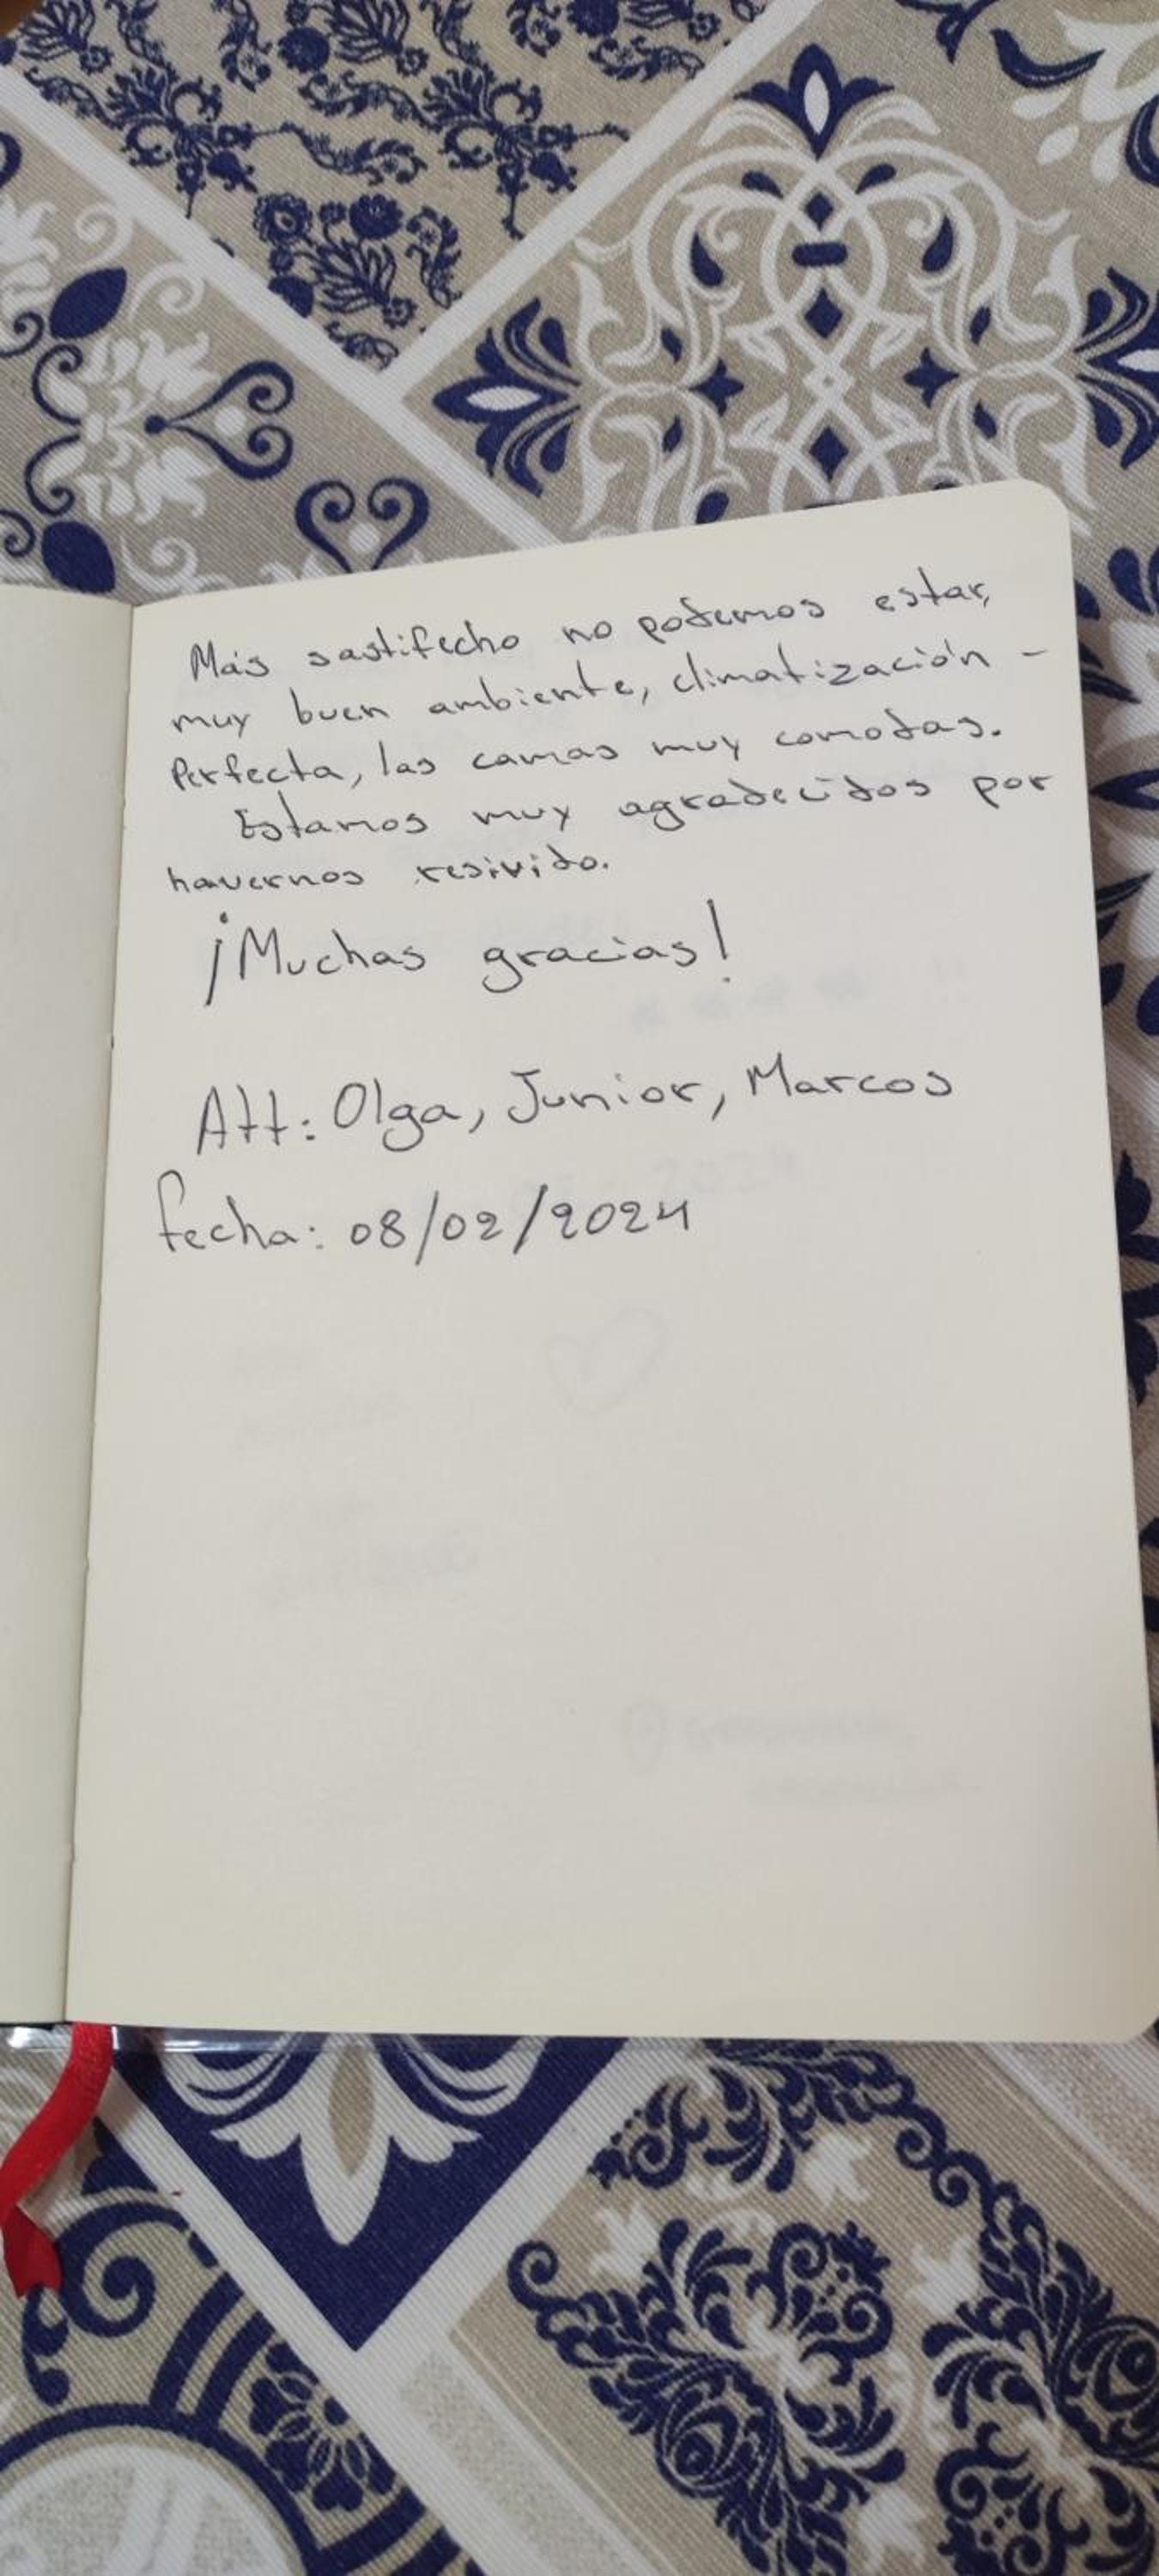 Más sastifecho no podemos estar,
muy buen ambiente, climatización -
Perfecta, las camas muy comodas.
Estamos muy agradecidos por
havernos resivido.
¡Muchas gracias!
Att: Olga, Junior, Marcos
fecha: 08/02/2024